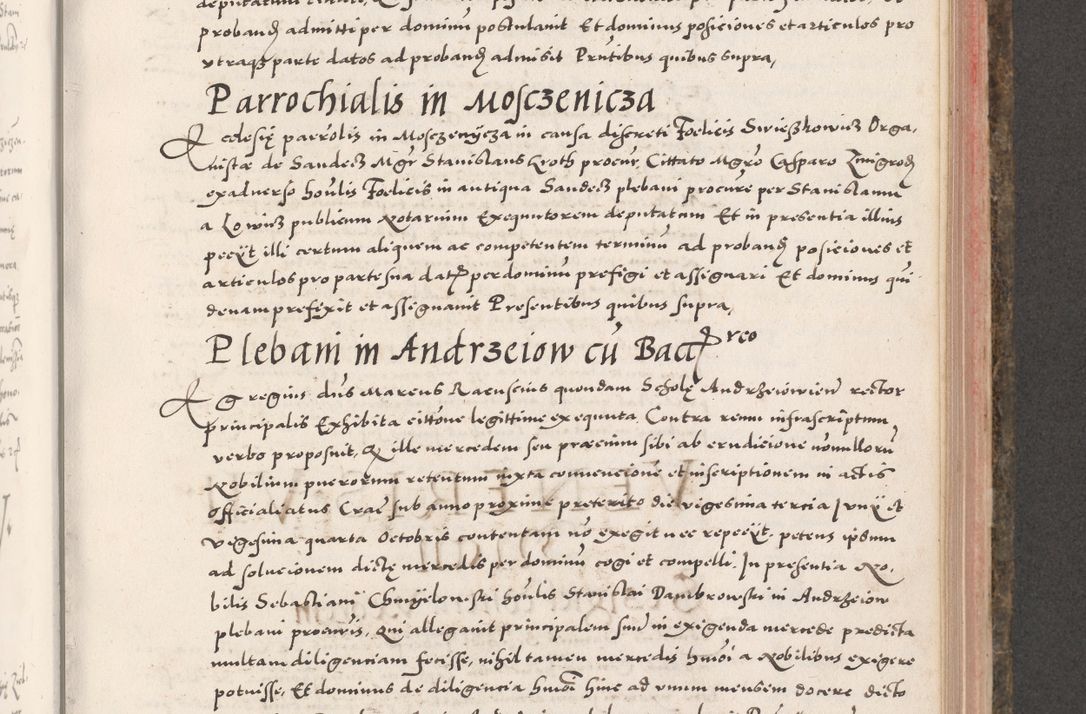 probandũ admitti per dominũ postulauit Et dominus posiciones et articulos pro
vtraqȝ parte datos ad probandũ admisit Pntibus quibus supra,
Parrochialis in Mosczenicza
Ecclesię parrolis in Mosczenycza in causa discreti Foelicis Swieszkowicz Orga,
nistæ de Sandecz Mgr Stanislaus Kroth procur, Cittato Mgro Casparo Zmigrodz
ex aduerso houlis Foelicis in antiqua Sandecz plebani procure per Stanislaum
a Lowicz publicum Notarium Exequutorem deputatum Et in presentia illius
pecyt illi certum aliquem ac competentem terminũ ad probandũ posiciones et
articulos pro parte sua dat per dominũ prefigi et assignari Et dominus qui
dem prefixit et assignauit Presentibus quibus supra,
Plebani in Andrzeiow cũ Bacreo
Egregius dns Marcus Racuscius quondam Scholę Andrzeiowien rector
principalis Exhibita cittone legittime exequuta Contra reum infrascriptum,
verbo proposuit, Q ille mercedem seu præmium sibi ab erudicione nonnullorũ
Nobilium puerorum retentum iuxta conuencionẽ et inscriptionem in actis
officialiatus Crac sub anno proxime preterito die vigesima tercia Junÿ et
vigesima quarta Octobris contentam nõ exegit nec repecÿt, petens ipsum
ad solucionem dictę mercedis per dominũ cogi et compelli. In presentia No,
bilis Sebastiani Chmyelowski houlis Stanislai Dambrowski in Andrzeiow
plebani procuris, qui allegauit principalem suũ in exigenda mercede predicta
multam diligenciam fecisse, nihil tamen mercedis hmõi a Nobilibus exigere
potuisse, Et dominus de diligencia hmõi hinc ad vnum mensem docere dicto